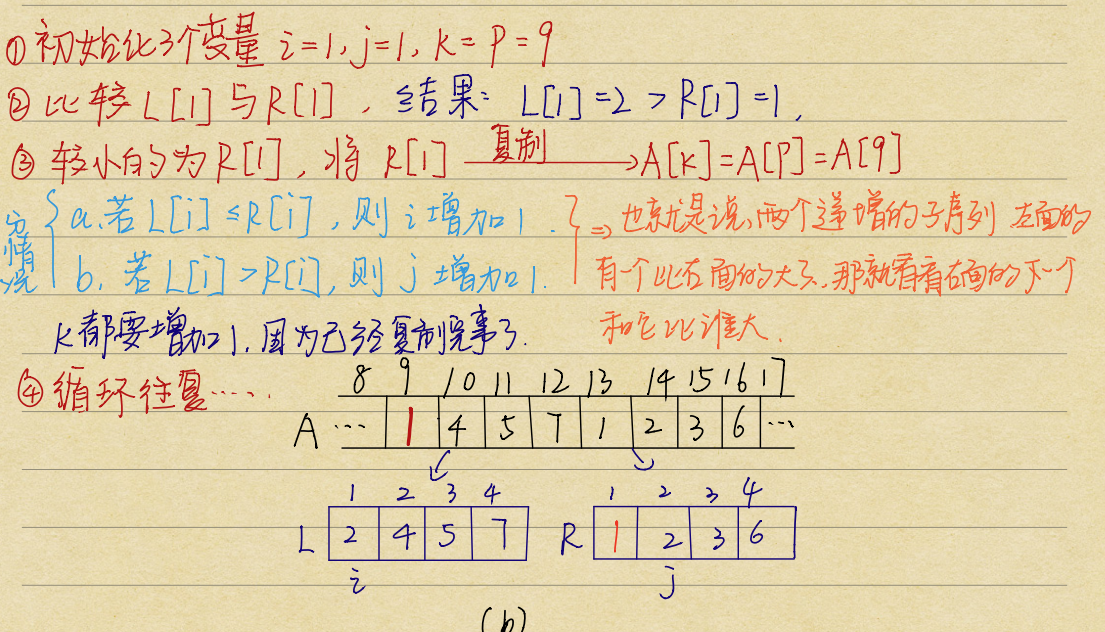 ①初始化3个变量 i=1, j=1, k=p=9
②比较L[1]与R[1],结果: L[1]=2 > R[1]=1,
③较小的为R[1],将 R[1] 复制→A[k]=A[p]=A[9]
分情况
a.若L[i]≤R[i],则i增加1.
b.若L[i]>R[i],则j增加1.
⇒也就是说,两个递增的子序列 左面的
有一个比右面的大了,那就看看右面的下一个
和它比谁大.
k都要增加1,因为已经复制完事了.
④循环往复……
8 9 10 11 12 13 14 15 16 17
A … 1 4 5 7 1 2 3 6 …
1 2 3 4
L 2 4 5 7
i
1 2 3 4
R 1 2 3 6
j
(b)